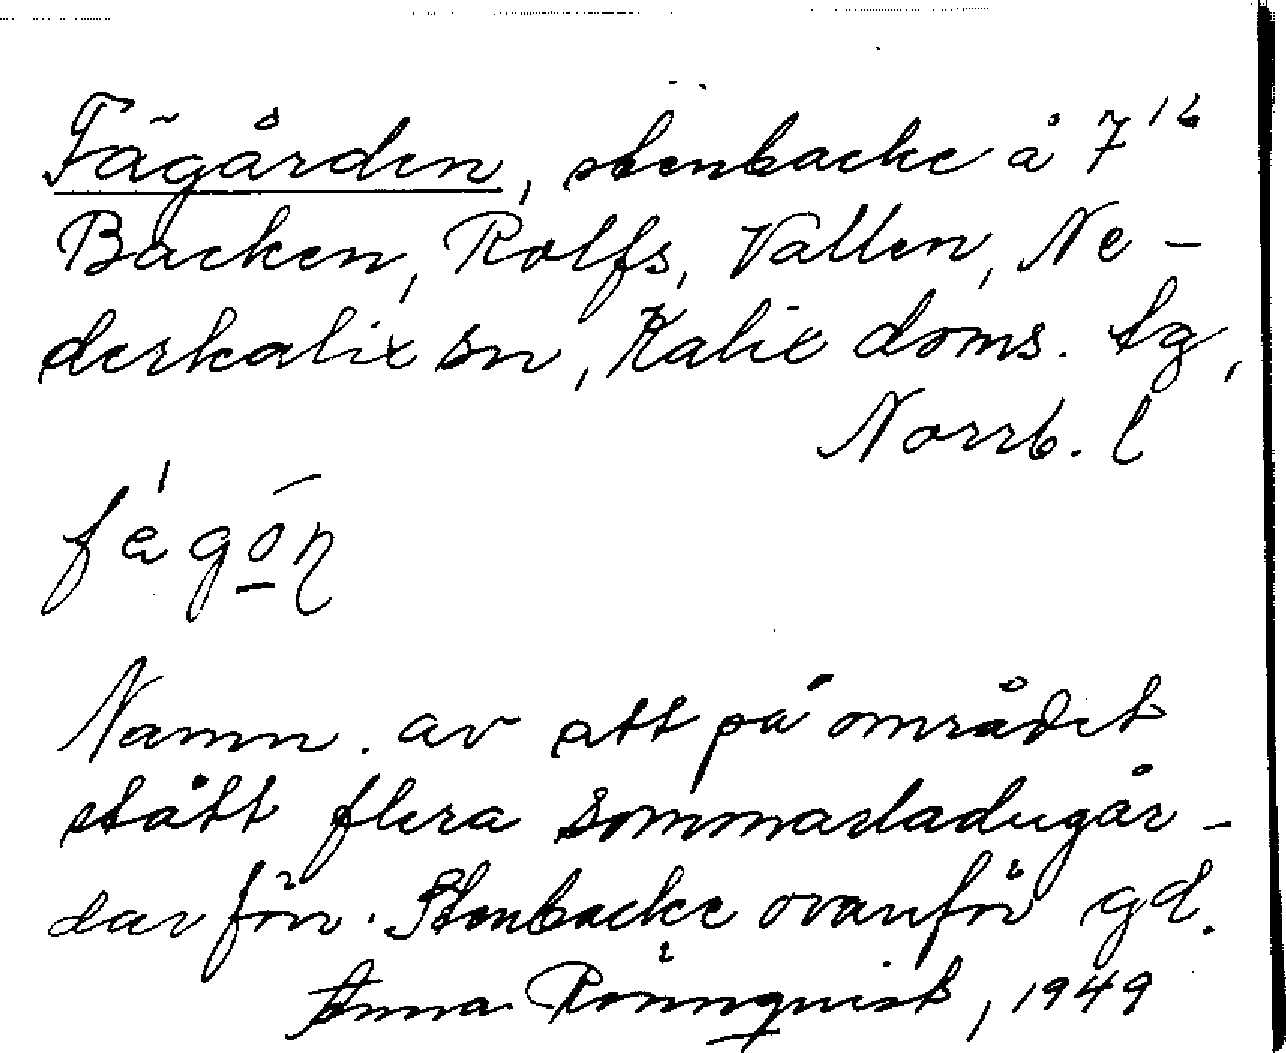 Fägården, stenbacke å 7¹⁶
Backen, Rolfs, Vallen, Ne-
derkalix sn, Kalix doms. tg,
Norrb. l
Namn. av att på området
stått flera sommarladugår-
dar förr. Stenbacke ovanför gd.
Anna Rönnquist, 1949